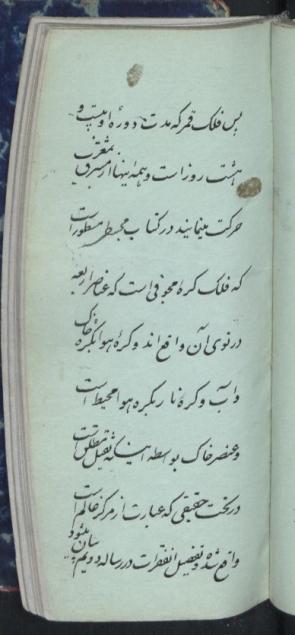 پس فلک قمر که مدت دورهٔ او بیست و
هشت روز است و همه اینها از مشرق بمغرب
حرکت مینمایند در کتاب مجسطی مسطور است
که فلک کرهٔ مجوفی است که عناصر اربعه
در توی آن واقع اند و کرهٔ هوا بکرهٔ خاک
و آب و کرهٔ نار بکره هوا محیط است
و عنصر خاک بواسطه اینکه ثقیل مطلق است
در تحت حقیقی که عبارت از مرکز عالم است
واقع شده و تفصیل این فقرات در رساله دویم بیان میشود